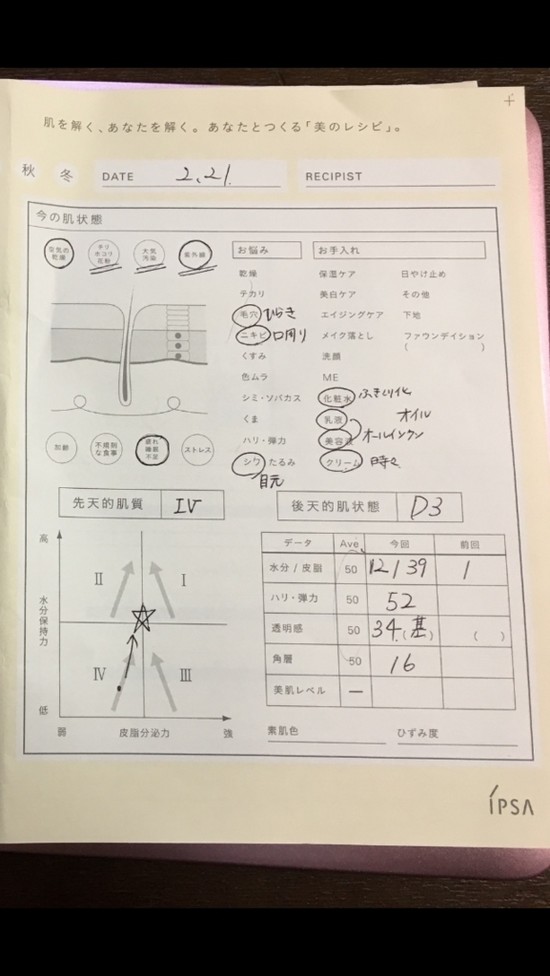 肌を解く、あなたを解く。あなたとつくる「美のレシピ」。
秋 冬 DATE 2.21. RECIPIST
今の肌状態
空気の乾燥 チリホコリ花粉 大気汚染 紫外線
お悩み お手入れ
乾燥 保湿ケア 日やけ止め
テカリ 美白ケア その他
毛穴 ひらき エイジングケア 下地
ニキビ 口周り メイク落とし ファウンデイション
( )
くすみ 洗顔
色ムラ ME
シミ・ソバカス 化粧水 ふきとり化
くま 乳液 オイル
ハリ・弾力 美容液 オールインワン
シワ たるみ クリーム 時々
目元
加齢 不規則な食事 疲れ睡眠不足 ストレス
先天的肌質 IV 後天的肌状態 D3
高
水分保持力
低
II I
IV III
弱 皮脂分泌力 強
データ Ave. 今回 前回
水分 / 皮脂 50 12 / 39 /
ハリ・弾力 50 52
透明感 50 34 (基) ( )
角層 50 16
美肌レベル —
素肌色 ひずみ度
IPSA